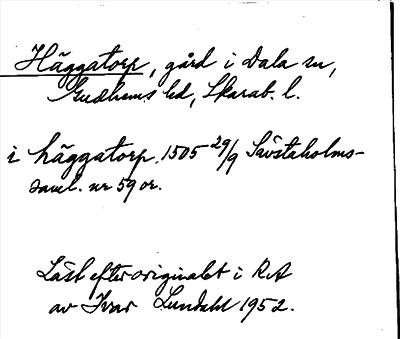 Häggatorp, gård i Dala sn,
Gudhems hd, Skarab. l.
i häggatorp. 1505 29/9 Sävstaholms-
saml. nr 59 or.
Läst efter originalet i RA
av Ivar Lundahl 1952.